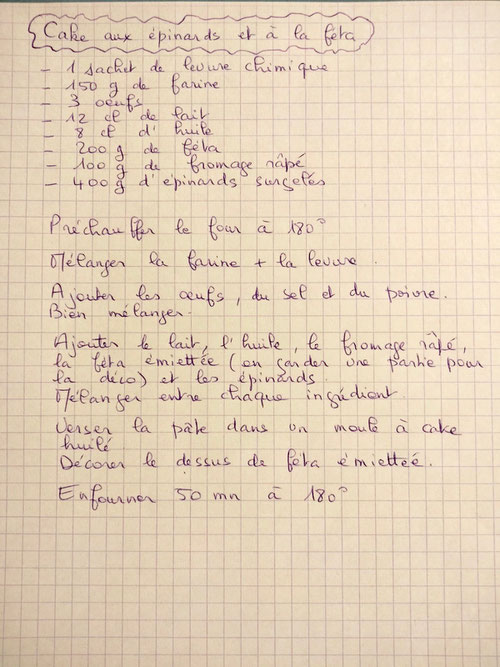 Cake aux épinards et à la féta
- 1 sachet de levure chimique
- 150 g de farine
- 3 oeufs
- 12 cl de lait
- 8 cl d'huile
- 200 g de féta
- 100 g de fromage râpé
- 400 g d'épinards surgelés
Préchauffer le four à 180°
Mélanger la farine + la levure.
Ajouter les œufs, du sel et du poivre.
Bien mélanger.
Ajouter le lait, l'huile, le fromage râpé,
la féta émiettée (en garder une partie pour
la déco) et les épinards.
Mélanger entre chaque ingrédient.
Verser la pâte dans un moule à cake
huilé
Décorer le dessus de féta émietteé.
Enfourner 50 mn à 180°